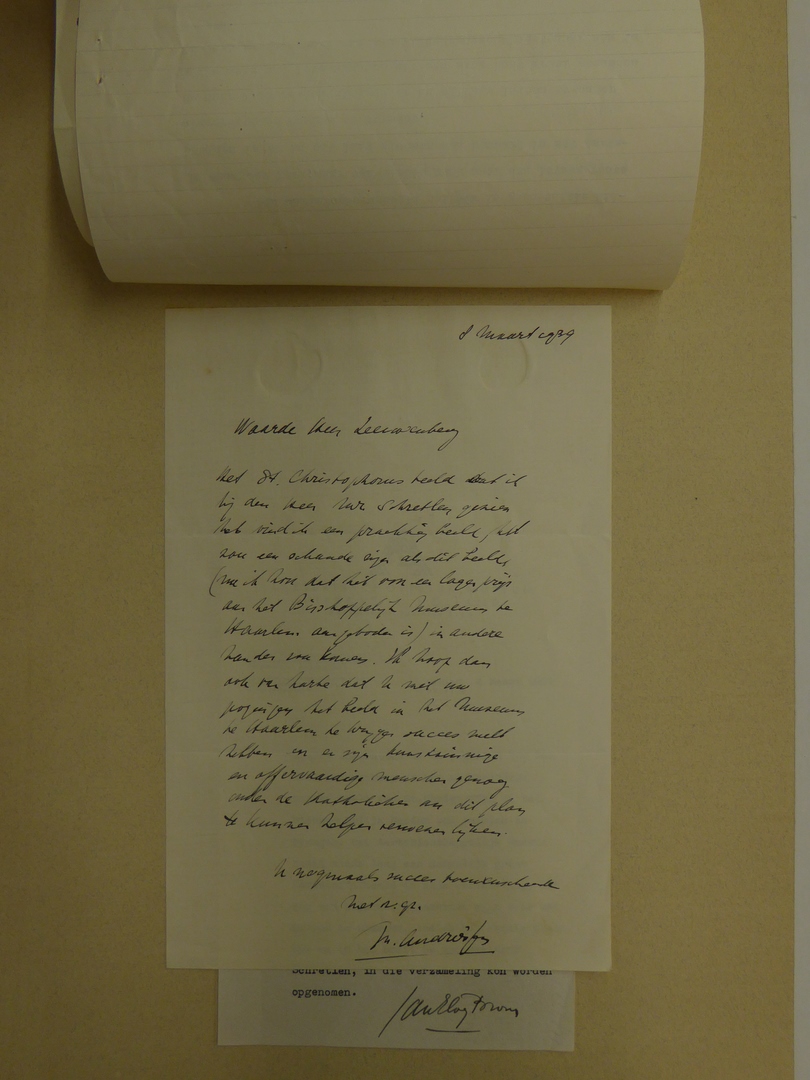 8 Maart 1939
Waarde Heer Leeuwenberg
Het St. Christophorus beeld dat ik
bij den Heer Schretlen gezien
heb vind ik een prachtig beeld, het
zou een schande zijn als dit beeld
(nu ik hoor dat het voor een lage prijs
aan het Bisschoppelijk Museum te
Haarlem aangeboden is) in andere
handen zou komen. Ik hoop dan
ook van harte dat U met uw
pogingen het beeld in het Museum
te Haarlem te krijgen succes zult
hebben en er zijn kunstzinnige
en offervaardige menschen genoeg
onder de Katholieken om dit plan
te kunnen helpen verwezenlijken.
U nogmaals succes toewenschende
met
M. Andriessen
Schretlen, in die verzameling kon worden
opgenomen.
Jan Eloy Brom